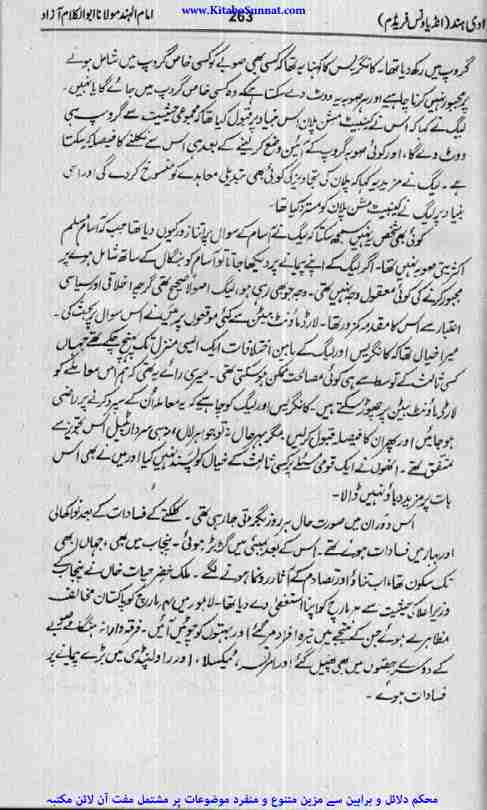 www.KitaboSunnat.com
ادی ہند (انڈیا ونس فریڈم) 263 امام الہند مولانا ابوالکلام آزاد
گروپ میں رکھ دیا تھا۔ کانگریس کا کہنا یہ تھا کہ کسی بھی صوبے کو کسی خاص گروپ میں شامل ہونے
پر مجبور نہیں کرنا چاہیے اور ہر صوبہ یہ ووٹ دے سکتا ہے کہ وہ کسی خاص گروپ میں جائے گا یا نہیں۔
لیگ نے کہا کہ اس نے کیبنیٹ مشن پلان اس بنیاد پر قبول کیا تھا کہ مجموعی حیثیت سے گروپ ہی
ووٹ دے گا، اور کوئی صوبہ گروپ کے آئین وضع کر لینے کے بعد ہی اس سے نکلنے کا فیصلہ کر سکتا
ہے۔ لیگ نے مزید یہ کہا کہ پلان کی تجاویز کی کوئی بھی تبدیلی معاہدے کو منسوخ کر دے گی اور اسی
بنیاد پر لیگ نے کیبنیٹ مشن پلان کو مسترد کیا تھا۔
کوئی بھی شخص یہ نہیں سمجھ سکتا کہ لیگ نے آسام کے سوال پر اتنا زور کیوں دیا تھا جب کہ آسام مسلم
اکثریتی صوبہ نہیں تھا۔ اگر لیگ کے اپنے پیمانے پر دیکھا جاتا تو آسام کو بنگال کے ساتھ شامل ہونے پر
مجبور کرنے کی کوئی معقول وجہ نہیں تھی۔ وجہ جو بھی رہی ہو، لیگ اصولاً صحیح تھی گرچہ اخلاقی اور سیاسی
اعتبار سے اس کا مقدمہ کمزور تھا۔ لارڈ ماؤنٹ بیٹن سے کئی موقعوں پر میں نے اس سوال پر بحث کی۔
میرا خیال تھا کہ کانگریس اور لیگ کے مابین اختلافات ایک ایسی منزل تک پہنچ چکے تھے جہاں
کسی ثالث کے توسط سے ہی کوئی مصالحت ممکن ہو سکتی تھی۔ میری رائے یہ تھی کہ ہم اس معاملے کو
لارڈ ماؤنٹ بیٹن پر چھوڑ سکتے ہیں۔ کانگریس اور لیگ کو چاہیے کہ یہ معاملہ ان کے سپرد کرنے پر راضی
ہو جائیں اور پھر ان کا فیصلہ قبول کر لیں، مگر بہرحال نہ تو جواہر لال، نہ ہی سردار پٹیل اس تجویز سے
متفق تھے۔ انھوں نے ایک قومی مسئلے پر کسی ثالث کے خیال کو پسند نہیں کیا اور میں نے بھی اس
بات پر مزید دباؤ نہیں ڈالا۔
اس دوران میں صورت حال ہر روز بگڑتی جا رہی تھی۔ کلکتے کے فسادات کے بعد نواکھالی
اور بہار میں فسادات ہوئے تھے۔ اس کے بعد بمبئی میں گڑبڑ ہوئی۔ پنجاب میں بھی، جہاں ابھی
تک سکون تھا، اب تناؤ اور تصادم کے آثار رونما ہونے لگے۔ ملک خضر حیات خاں نے پنجاب کے
وزیر اعلیٰ کی حیثیت سے مارچ کو اپنا استعفیٰ دے دیا تھا۔ لاہور میں مارچ کو پاکستان مخالف
مظاہرے ہوئے جن کے نتیجے میں تیرہ افراد مر گئے اور بہتوں کو چوٹیں آئیں۔ فرقہ وارانہ ہنگامے صوبے
کے دوسرے حصوں میں بھی پھیل گئے اور امرتسر، ٹیکسلا، اور راولپنڈی میں بڑے پیمانے پر
فسادات ہوئے۔
محکم دلائل و براہین سے مزین متنوع و منفرد موضوعات پر مشتمل مفت آن لائن مکتبہ